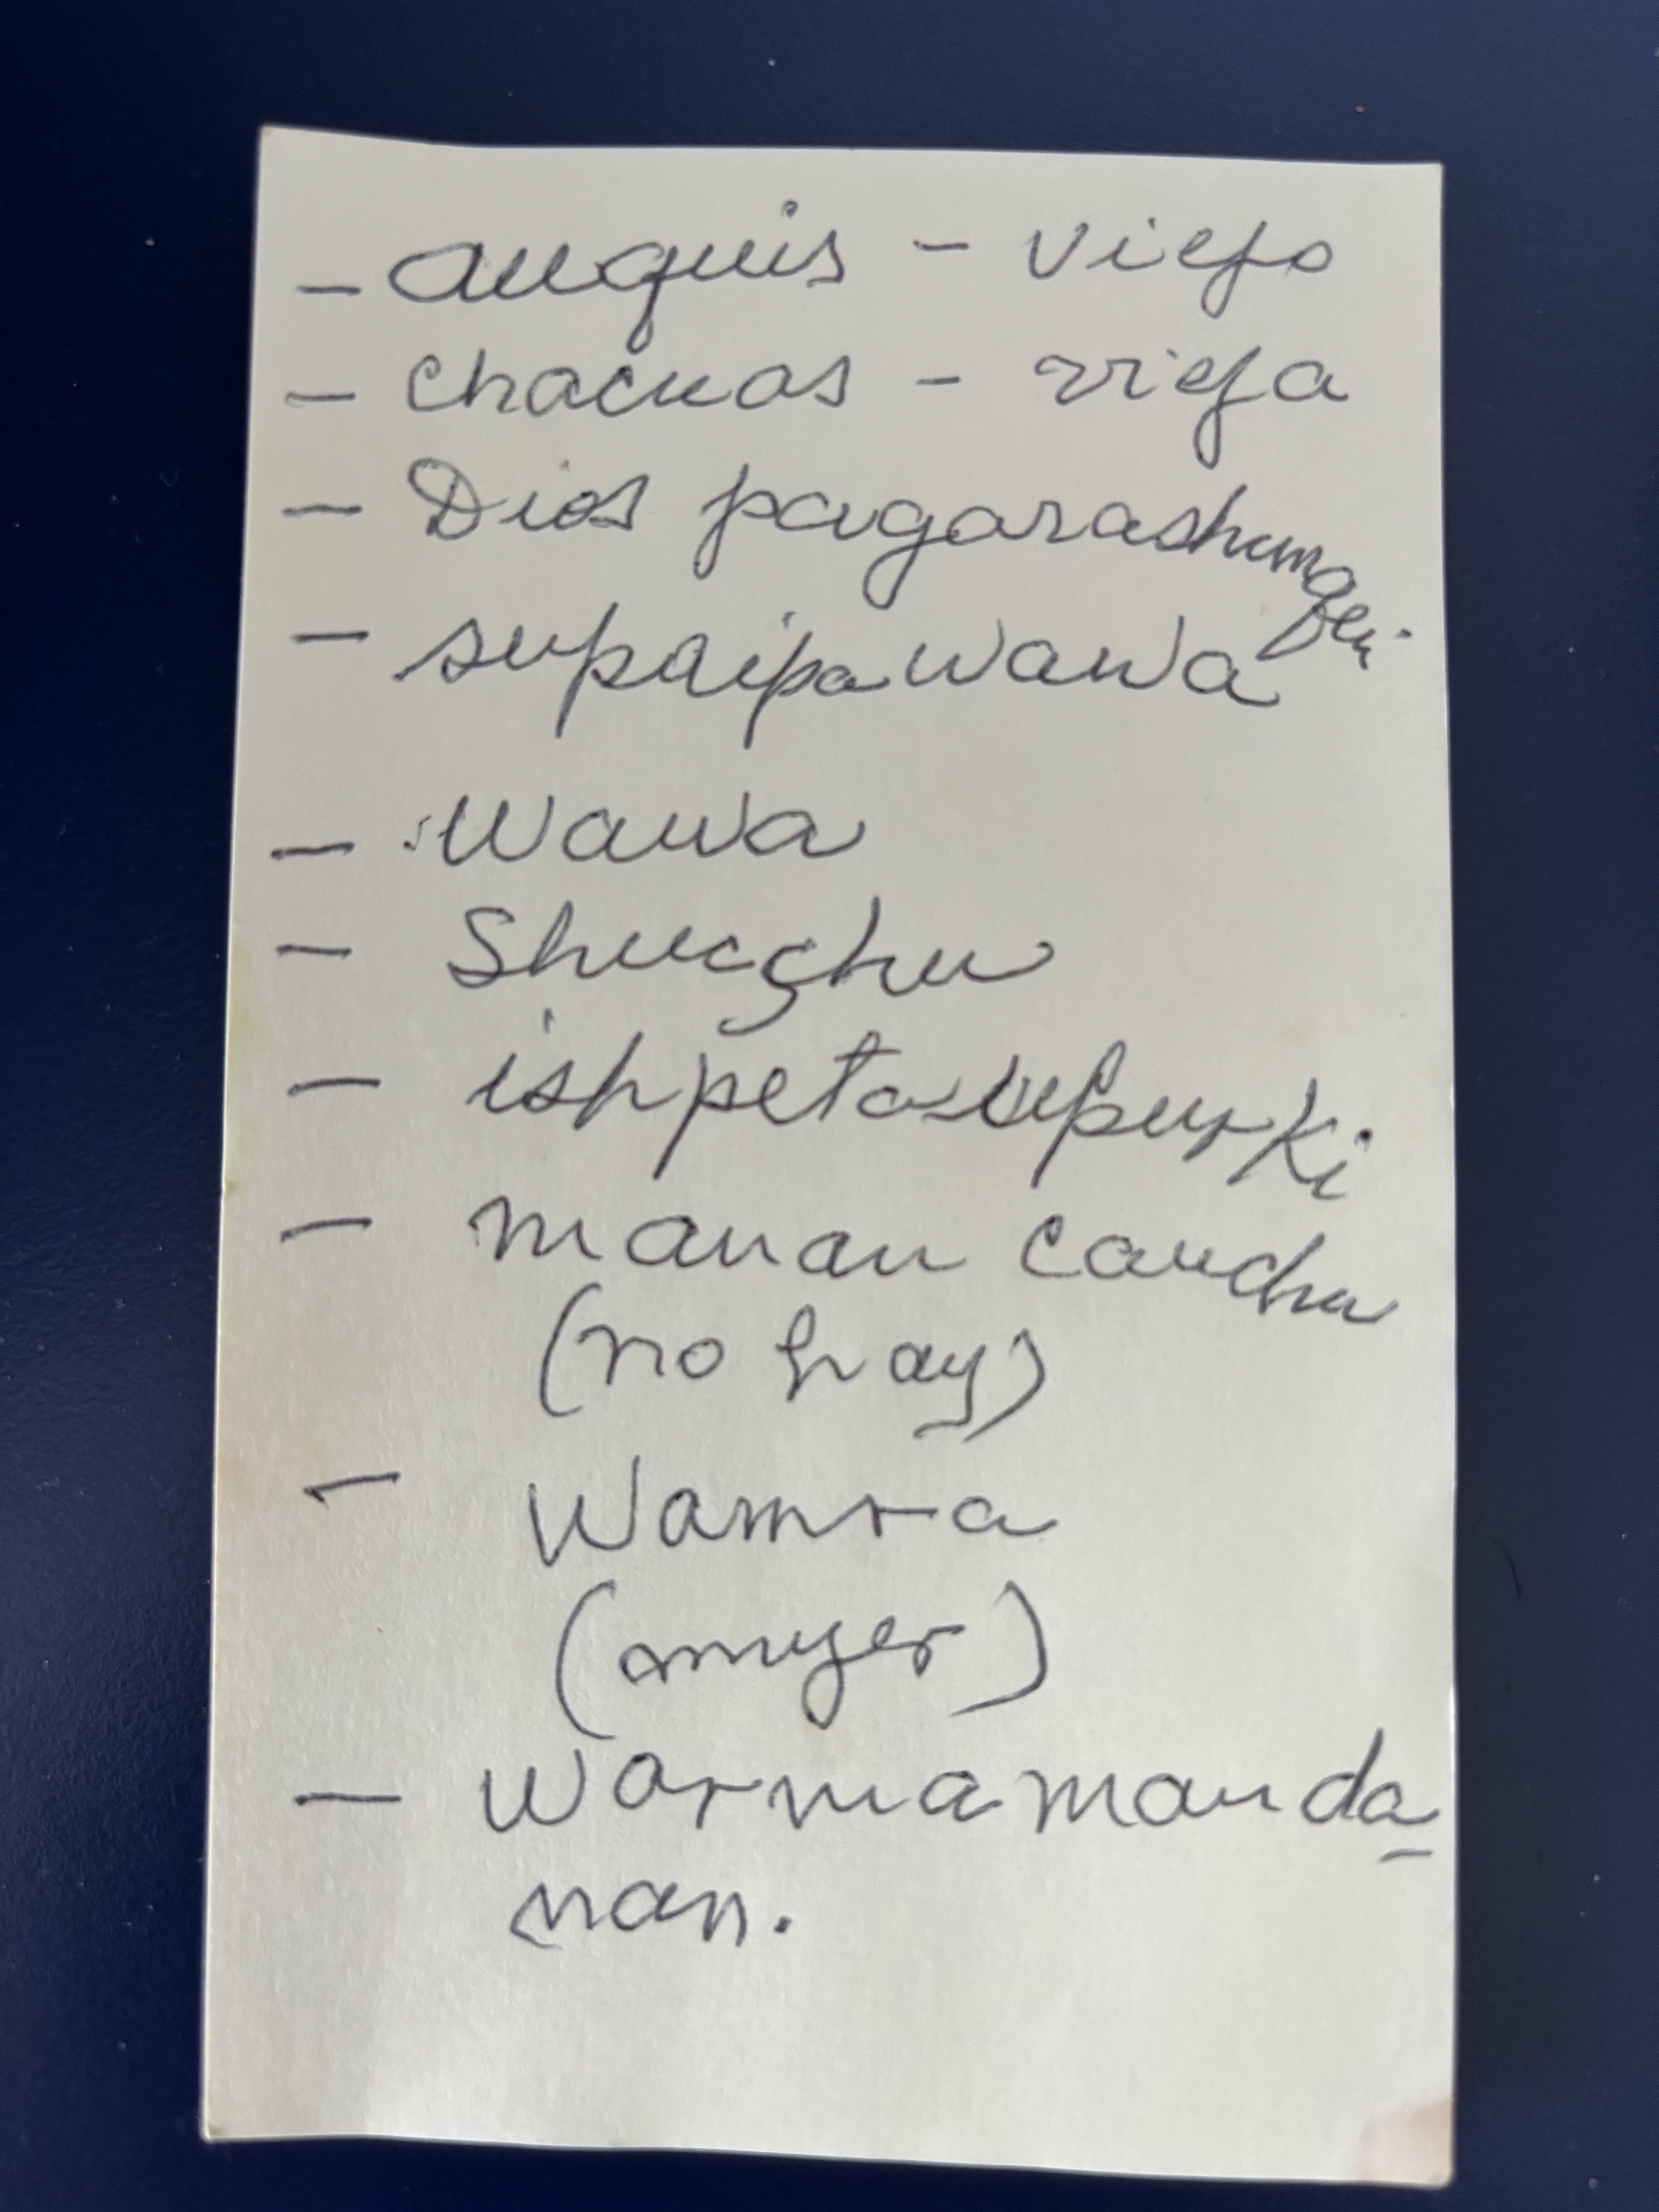 - auquis - viejo
- chacuas - vieja
- Dios pagarashunqui.
- supaipa wawa
- Wawa
- Shucshu
- ishpeta upurki
- manan canchu
(no hay)
- Wamra
(mujer)
- Warmamanda
nan.